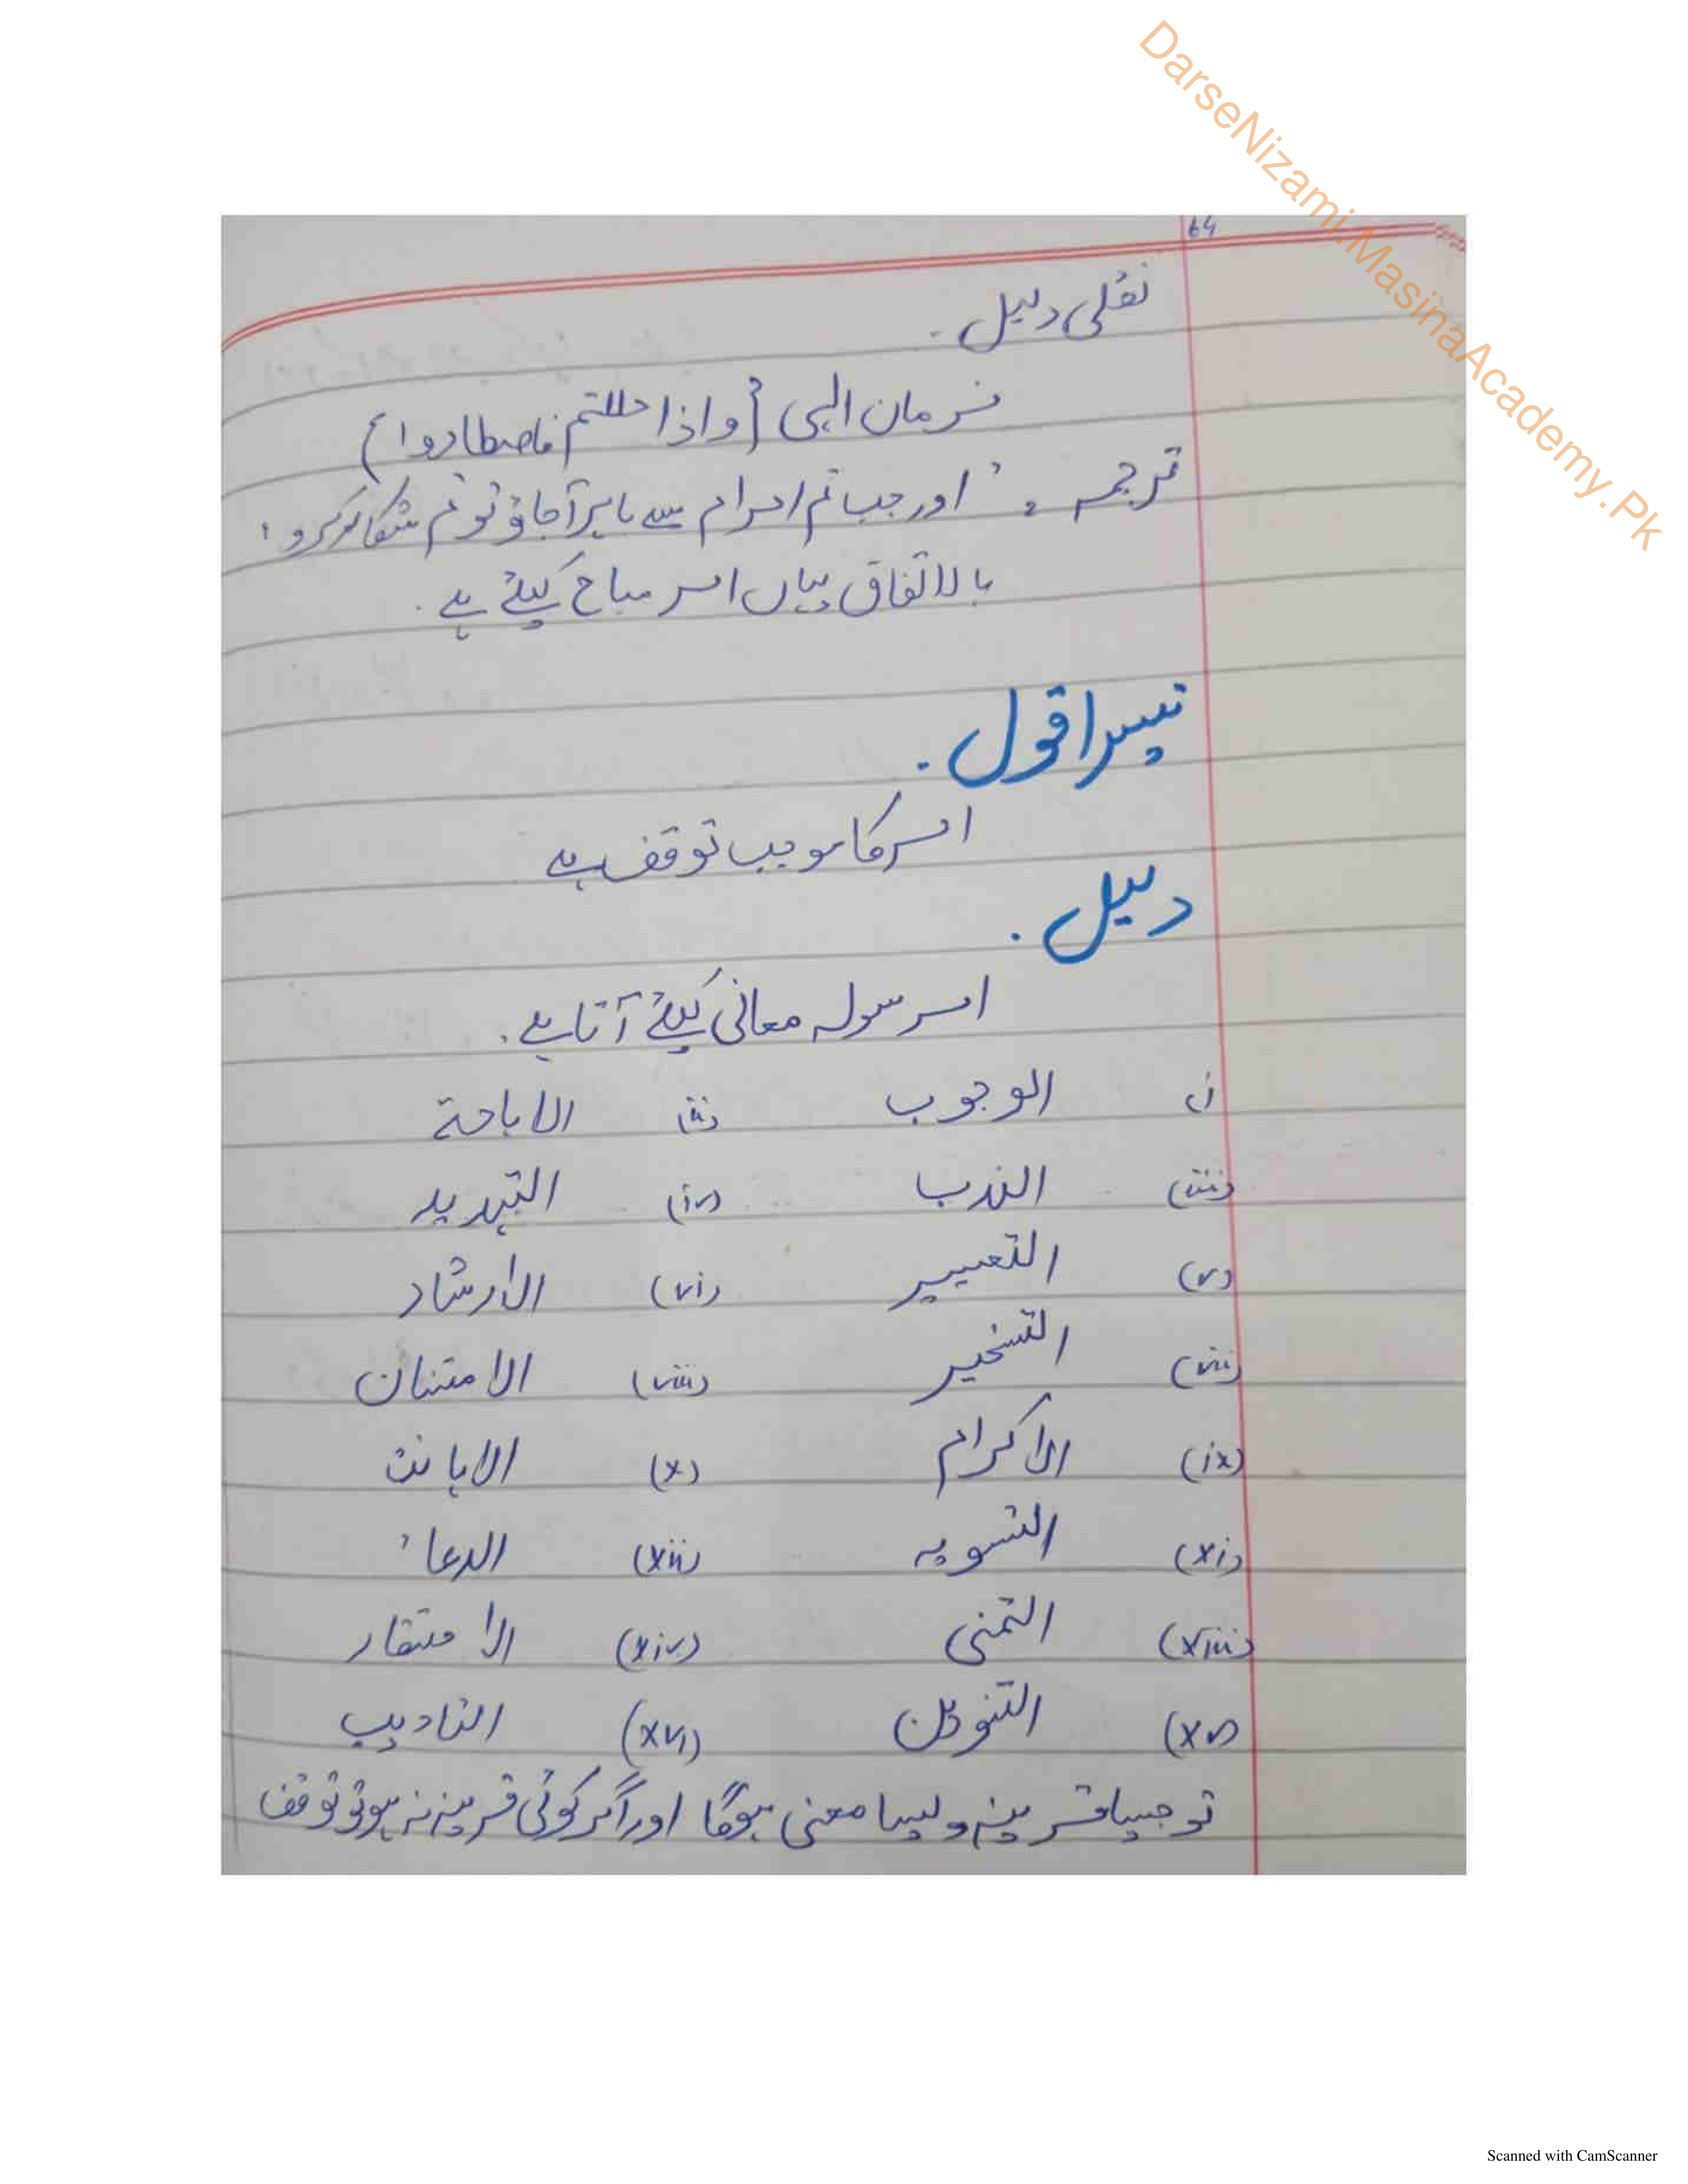 DarseNizami.MasinaAcademy.Pk
64
نقلی دلیل ۔
فرمان الہی {واذا حللتم فاصطادوا}
ترجمہ ۔ ' اور جب تم احرام سے باہر آجاؤ تو تم شکار کرو '
بالاتفاق یہاں امر مباح کیلئے ہے ۔
تیسرا قول ۔
امر کا موجب توقف ہے
دلیل ۔
امر سولہ معانی کیلئے آتا ہے ۔
(i) الوجوب (ii) الاباحۃ
(iii) الندب (iv) التہدید
(v) التعبیر (vi) الارشاد
(vii) التسخیر (viii) الامتنان
(ix) الاکرام (x) الاہانت
(xi) التسویہ (xii) الدعاء
(xiii) التمنی (xiv)
(xv) (xvi) التادیب
تو جیسا قرینہ ویسا معنی ہوگا اور اگر کوئی قرینہ نہ ہو تو توقف
Scanned with CamScanner